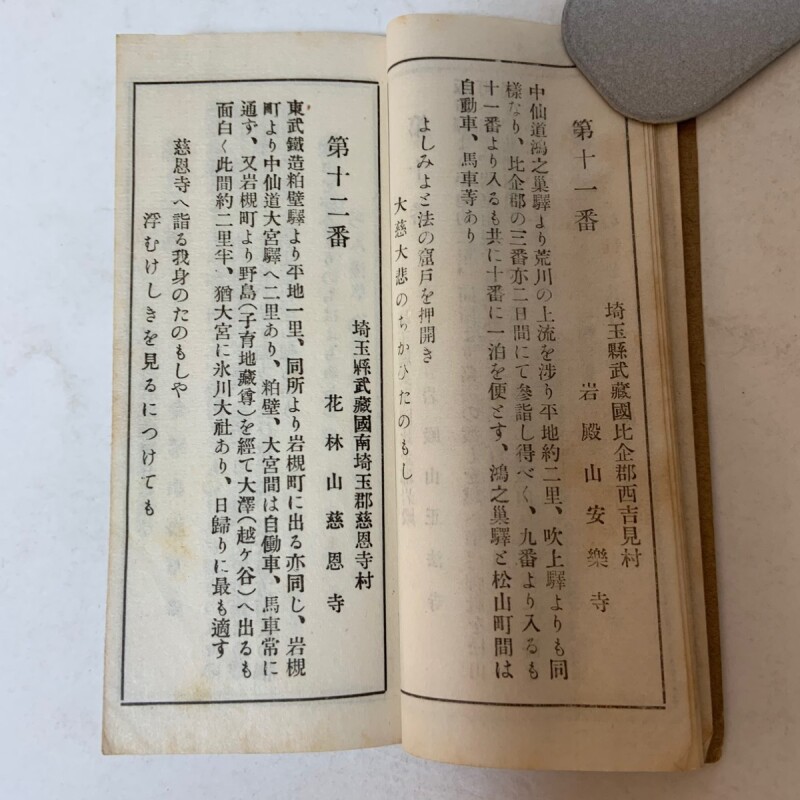 第十一番
埼玉縣武藏國比企郡西吉見村
岩殿山安樂寺
中仙道鴻之巢驛より荒川の上流を渉り平地約二里、吹上驛よりも同
樣なり、比企郡の三番亦二日間にて參詣し得べく、九番より入るも
十一番より入るも共に十番に一泊を便とす、鴻之巢驛と松山町間は
自動車、馬車等あり
よしみよと法の窟戸を押開き
大慈大悲のちかひたのもし
第十二番
埼玉縣武藏國南埼玉郡慈恩寺村
花林山慈恩寺
東武鐵造粕壁驛より平地一里、同所より岩槻町に出る亦同じ、岩槻
町より中仙道大宮驛へ二里あり、粕壁、大宮間は自働車、馬車常に
通ず、又岩槻町より野島(子育地藏尊)を經て大澤(越ヶ谷)へ出るも
面白く此間約二里半、猶大宮に氷川大社あり、日歸りに最も適す
慈恩寺へ詣る我身のたのもしや
浮むけしきを見るにつけても